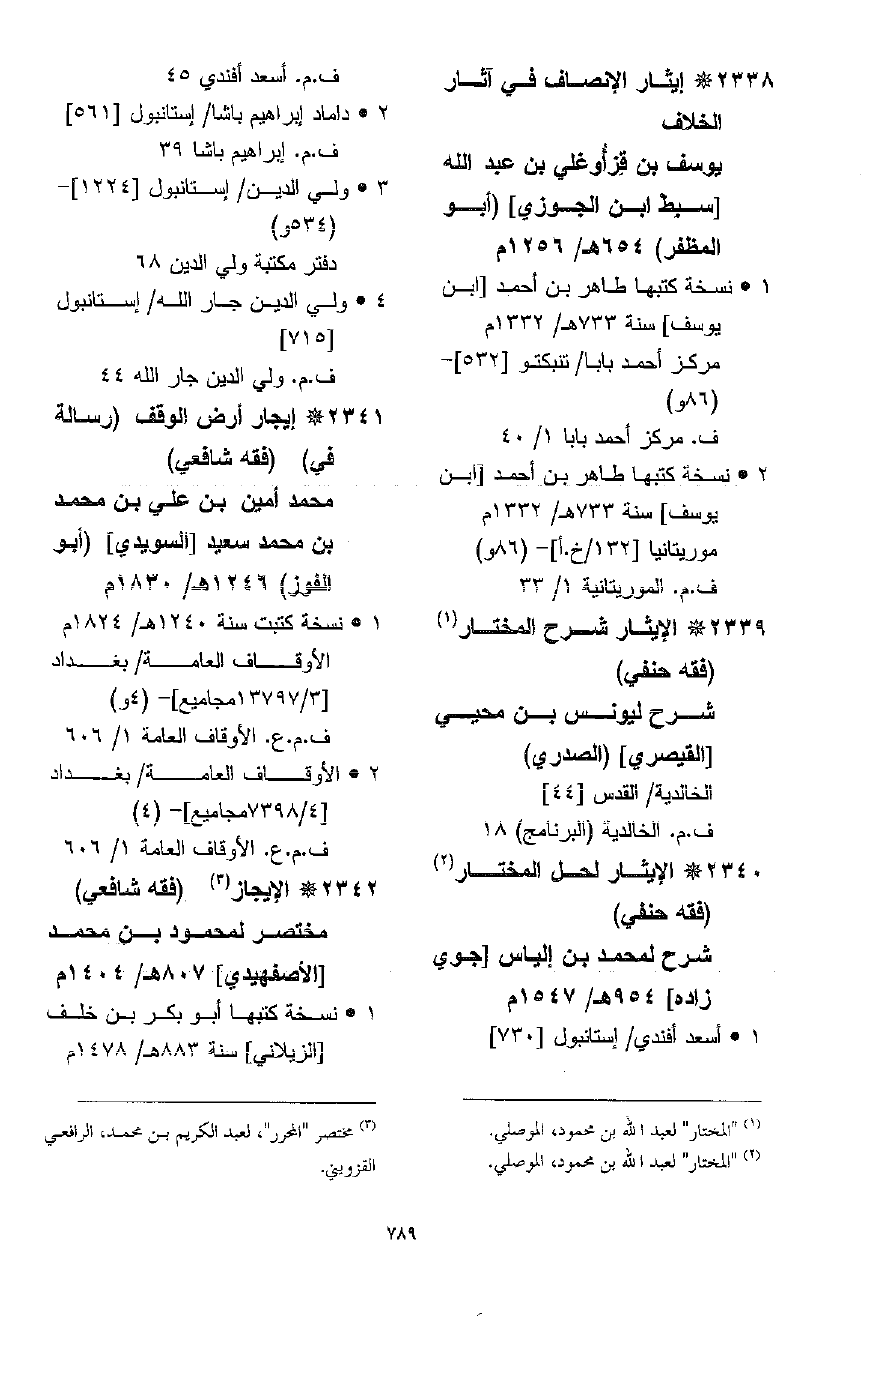 ٢٣٣٨* إيثار الإنصاف في آثار
الخلاف
يوسف بن قِزأُوغلي بن عبد الله
[سبط ابن الجوزي] (أبو
المظفر) ٦٥٤هـ/ ١٢٥٦م
١ • نسخة كتبها طاهر بن أحمد [ابن
يوسف] سنة ٧٣٣هـ/ ١٣٣٢م
مركز أحمد بابا/ تنبكتو [٥٣٢]-
(٨٦و)
ف. مركز أحمد بابا ١/ ٤٠
٢ • نسخة كتبها طاهر بن أحمد [ابن
يوسف] سنة ٧٣٣هـ/ ١٣٣٢م
موريتانيا [١٣٢/خ.أ]- (٨٦و)
ف.م. الموريتانية ١/ ٣٣
٢٣٣٩* الإيثار شرح المختار(١)
(فقه حنفي)
شرح ليونس بن محيي
[القيصري] (الصدري)
الخالدية/ القدس [٤٤]
ف.م. الخالدية (البرنامج) ١٨
٢٣٤٠* الإيثار لحل المختار(٢)
(فقه حنفي)
شرح لمحمد بن إلياس [جوي
زاده] ٩٥٤هـ/ ١٥٤٧م
١ • أسعد أفندي/ إستانبول [٧٣٠]
(١) "المختار" لعبد الله بن محمود، الموصلي.
(٢) "المختار" لعبد الله بن محمود، الموصلي.
ف.م. أسعد أفندي ٤٥
٢ • داماد إبراهيم باشا/ إستانبول [٥٦١]
ف.م. إبراهيم باشا ٣٩
٣ • ولي الدين/ إستانبول [١٢٢٤]-
(٥٣٤و)
دفتر مكتبة ولي الدين ٦٨
٤ • ولي الدين جار الله/ إستانبول
[٧١٥]
ف.م. ولي الدين جار الله ٤٤
٢٣٤١* إيجار أرض الوقف (رسالة
في) (فقه شافعي)
محمد أمين بن علي بن محمد
بن محمد سعيد [السويدي] (أبو
الفوز) ١٢٤٦هـ/ ١٨٣٠م
١ • نسخة كتبت سنة ١٢٤٠هـ/ ١٨٢٤م
الأوقاف العامة/ بغداد
[١٣٧٩٧/٣مجاميع]- (٤و)
ف.م.ع. الأوقاف العامة ١/ ٦٠٦
٢ • الأوقاف العامة/ بغداد
[٧٣٩٨/٤مجاميع]- (٤)
ف.م.ع. الأوقاف العامة ١/ ٦٠٦
٢٣٤٢* الإيجاز(٣) (فقه شافعي)
مختصر لمحمود بن محمد
[الأصفهيدي] ٨٠٧هـ/ ١٤٠٤م
١ • نسخة كتبها أبو بكر بن خلف
[الزيلاني] سنة ٨٨٣هـ/ ١٤٧٨م
(٣) مختصر "المحرر"، لعبد الكريم بن محمد، الرافعي
القزويني.
٧٨٩